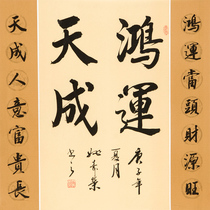 鴻運當頭財源旺
鴻運
天成
庚子年
夏月
天成人意富貴長